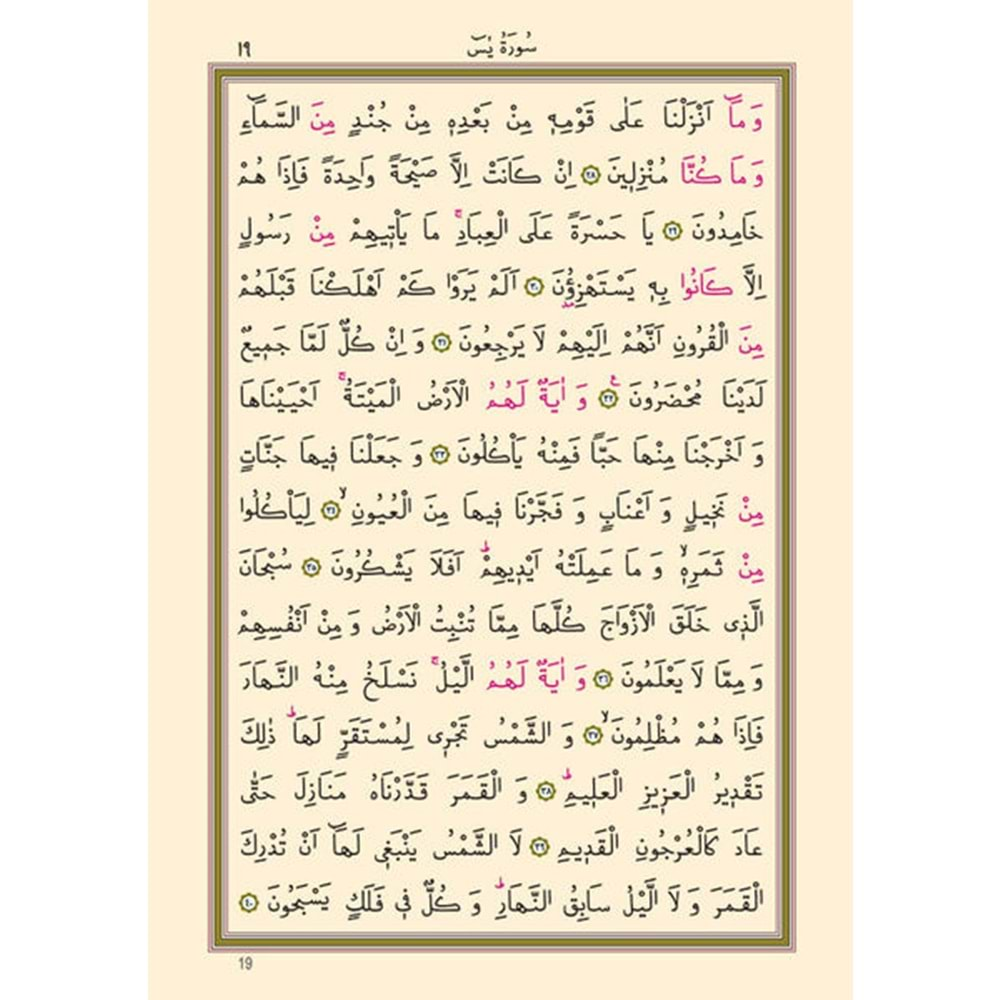 ١٩
سُورَةُ يٰسٓ
وَ مَٓا اَنْزَلْنَا عَلٰى قَوْمِه۪ مِنْ بَعْدِه۪ مِنْ جُنْدٍ مِنَ السَّمَٓاءِ
وَ مَا كُنَّا مُنْزِل۪ينَ ﴿٢٨﴾ اِنْ كَانَتْ اِلَّا صَيْحَةً وَاحِدَةً فَاِذَا هُمْ
خَامِدُونَ ﴿٢٩﴾ يَا حَسْرَةً عَلَى الْعِبَادِۚ مَا يَأْت۪يهِمْ مِنْ رَسُولٍ
اِلَّا كَانُوا بِه۪ يَسْتَهْزِؤُ۫نَ ﴿٣٠﴾ اَلَمْ يَرَوْا كَمْ اَهْلَكْنَا قَبْلَهُمْ
مِنَ الْقُرُونِ اَنَّهُمْ اِلَيْهِمْ لَا يَرْجِعُونَ ﴿٣١﴾ وَ اِنْ كُلٌّ لَمَّا جَم۪يعٌ
لَدَيْنَا مُحْضَرُونَ۟ ﴿٣٢﴾ وَ اٰيَةٌ لَهُمُ الْاَرْضُ الْمَيْتَةُۚ اَحْيَيْنَاهَا
وَ اَخْرَجْنَا مِنْهَا حَبًّا فَمِنْهُ يَأْكُلُونَ ﴿٣٣﴾ وَ جَعَلْنَا ف۪يهَا جَنَّاتٍ
مِنْ نَخ۪يلٍ وَ اَعْنَابٍ وَ فَجَّرْنَا ف۪يهَا مِنَ الْعُيُونِۙ ﴿٣٤﴾ لِيَأْكُلُوا
مِنْ ثَمَرِه۪ۙ وَ مَا عَمِلَتْهُ اَيْد۪يهِمْۜ اَفَلَا يَشْكُرُونَ ﴿٣٥﴾ سُبْحَانَ
الَّذ۪ى خَلَقَ الْاَزْوَاجَ كُلَّهَا مِمَّا تُنْبِتُ الْاَرْضُ وَ مِنْ اَنْفُسِهِمْ
وَ مِمَّا لَا يَعْلَمُونَ ﴿٣٦﴾ وَ اٰيَةٌ لَهُمُ الَّيْلُۚ نَسْلَخُ مِنْهُ النَّهَارَ
فَاِذَا هُمْ مُظْلِمُونَۙ ﴿٣٧﴾ وَ الشَّمْسُ تَجْر۪ى لِمُسْتَقَرٍّ لَهَاۜ ذٰلِكَ
تَقْد۪يرُ الْعَز۪يزِ الْعَل۪يمِۜ ﴿٣٨﴾ وَ الْقَمَرَ قَدَّرْنَاهُ مَنَازِلَ حَتّٰى
عَادَ كَالْعُرْجُونِ الْقَد۪يمِ ﴿٣٩﴾ لَا الشَّمْسُ يَنْبَغ۪ى لَهَٓا اَنْ تُدْرِكَ
الْقَمَرَ وَ لَا الَّيْلُ سَابِقُ النَّهَارِۜ وَ كُلٌّ ف۪ى فَلَكٍ يَسْبَحُونَ ﴿٤٠﴾
19